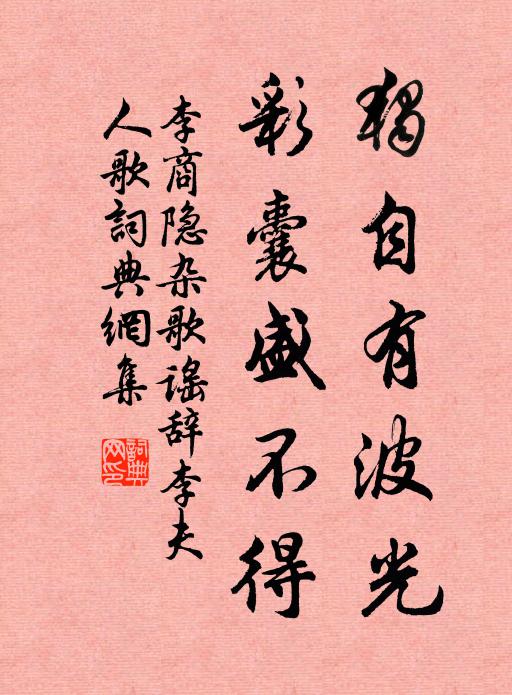 獨自有波光
彩囊盛不得
李商隐杂歌谣辞李夫
人歌詞典網集
詞典網印